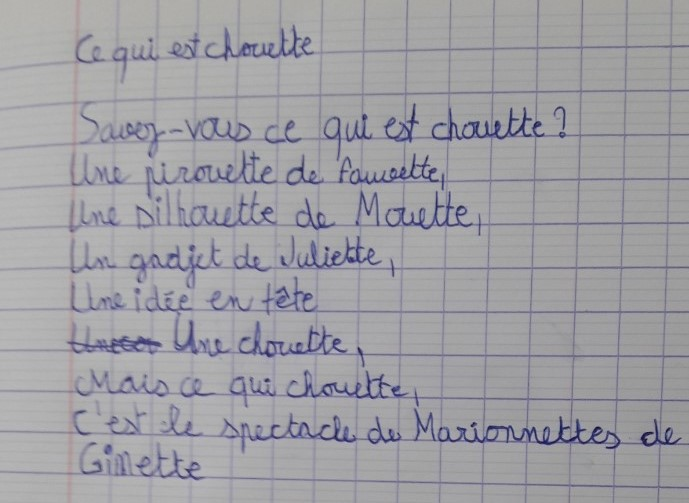 Ce qui est chouette
Savez-vous ce qui est chouette ?
Une pirouette de fauvette,
Une silhouette de Mouette,
Un gadjet de Juliette,
Une idée en tête
Une chouette,
Mais ce qui chouette,
C'est le spectacle de Marionnettes de
Ginette